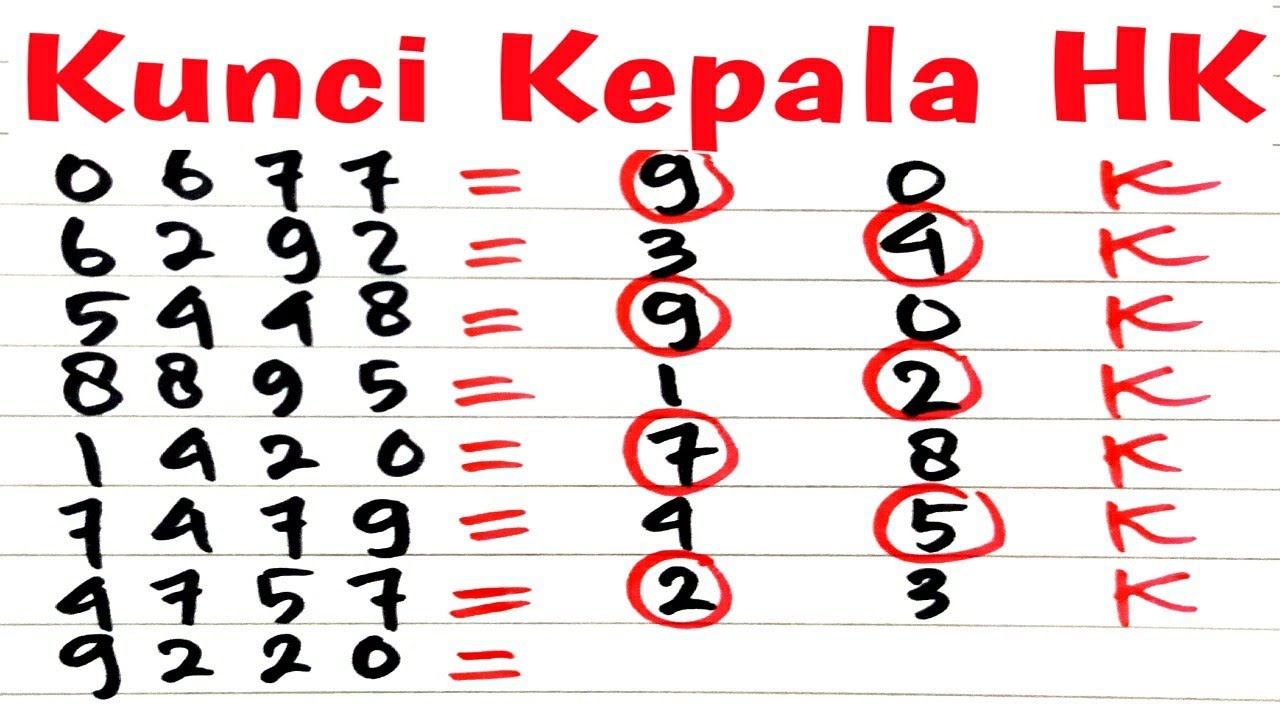 Kunci Kepala HK
0 6 7 7 = 9 0 K
6 2 9 2 = 3 4 K
5 4 4 8 = 9 0 K
8 8 9 5 = 1 2 K
1 4 2 0 = 7 8 K
7 4 7 9 = 4 5 K
4 7 5 7 = 2 3 K
9 2 2 0 =